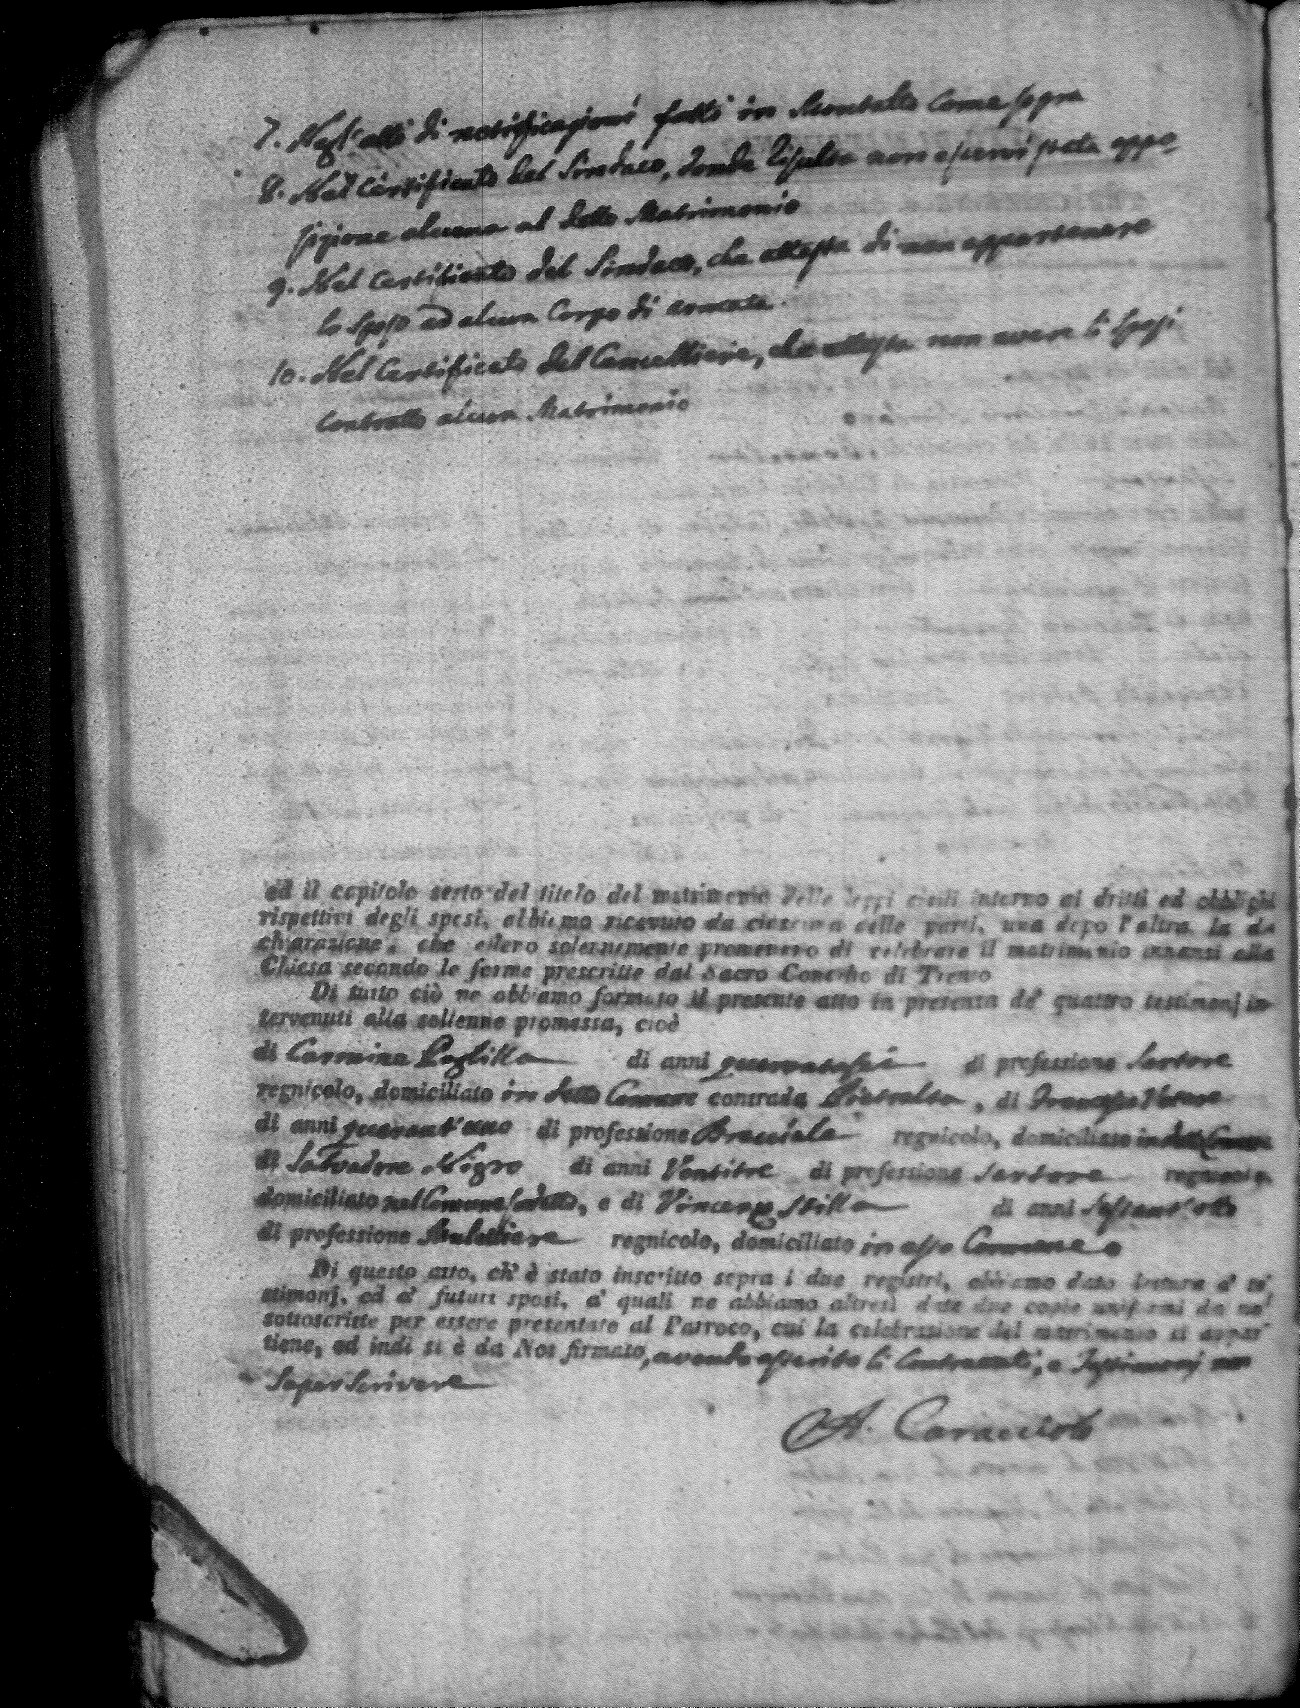 7. Negl'atti di notificazioni fatti in Montalto come sopra
8. Nel Certificato del Sindaco, donde risulta non esservi stata oppo-
sizione alcuna al detto Matrimonio
9. Nel Certificato del Sindaco, che attesta di non appartenere
lo sposo ad alcun Corpo di armata.
10. Nel Certificato del Cancelliere, che attesta non avere li sposi
contratto alcun Matrimonio
ed il capitolo sesto del titolo del matrimonio delle leggi civili intorno ai dritti ed obblighi
rispettivi degli sposi, abbiamo ricevuto da ciascuna delle parti, una dopo l'altra, la di-
chiarazione, che elleno solennemente promettono di celebrare il matrimonio innanzi alla
Chiesa secondo le forme prescritte dal Sacro Concilio di Trento
Di tutto ciò ne abbiamo formato il presente atto in presenza de' quattro testimonj in-
tervenuti alla sollenne promessa, cioè
di Carmine di anni quarantasei di professione Sartore
regnicolo, domiciliato in detto Comune contrada, di
di anni quarant'uno di professione Bracciale regnicolo, domiciliato in detto Comune
di Salvadore Nigro di anni Ventitre di professione Sartore regnicolo,
domiciliato nel Comune sudetto, e di Vincenzo Stilla di anni sessant'otto
di professione Mulattiere regnicolo, domiciliato in esso Comune
Di questo atto, ch' è stato inscritto sopra i due registri, abbiamo dato lettura a' te-
stimonj, ed a' futuri sposi, a' quali ne abbiamo altresì date due copie uniformi da noi
sottoscritte per essere presentate al Parroco, cui la celebrazione del matrimonio si appar-
tiene, ed indi si è da Noi firmato, avendo asserito li Contraenti, e Testimonj non
saper scrivere
A. Caracciolo